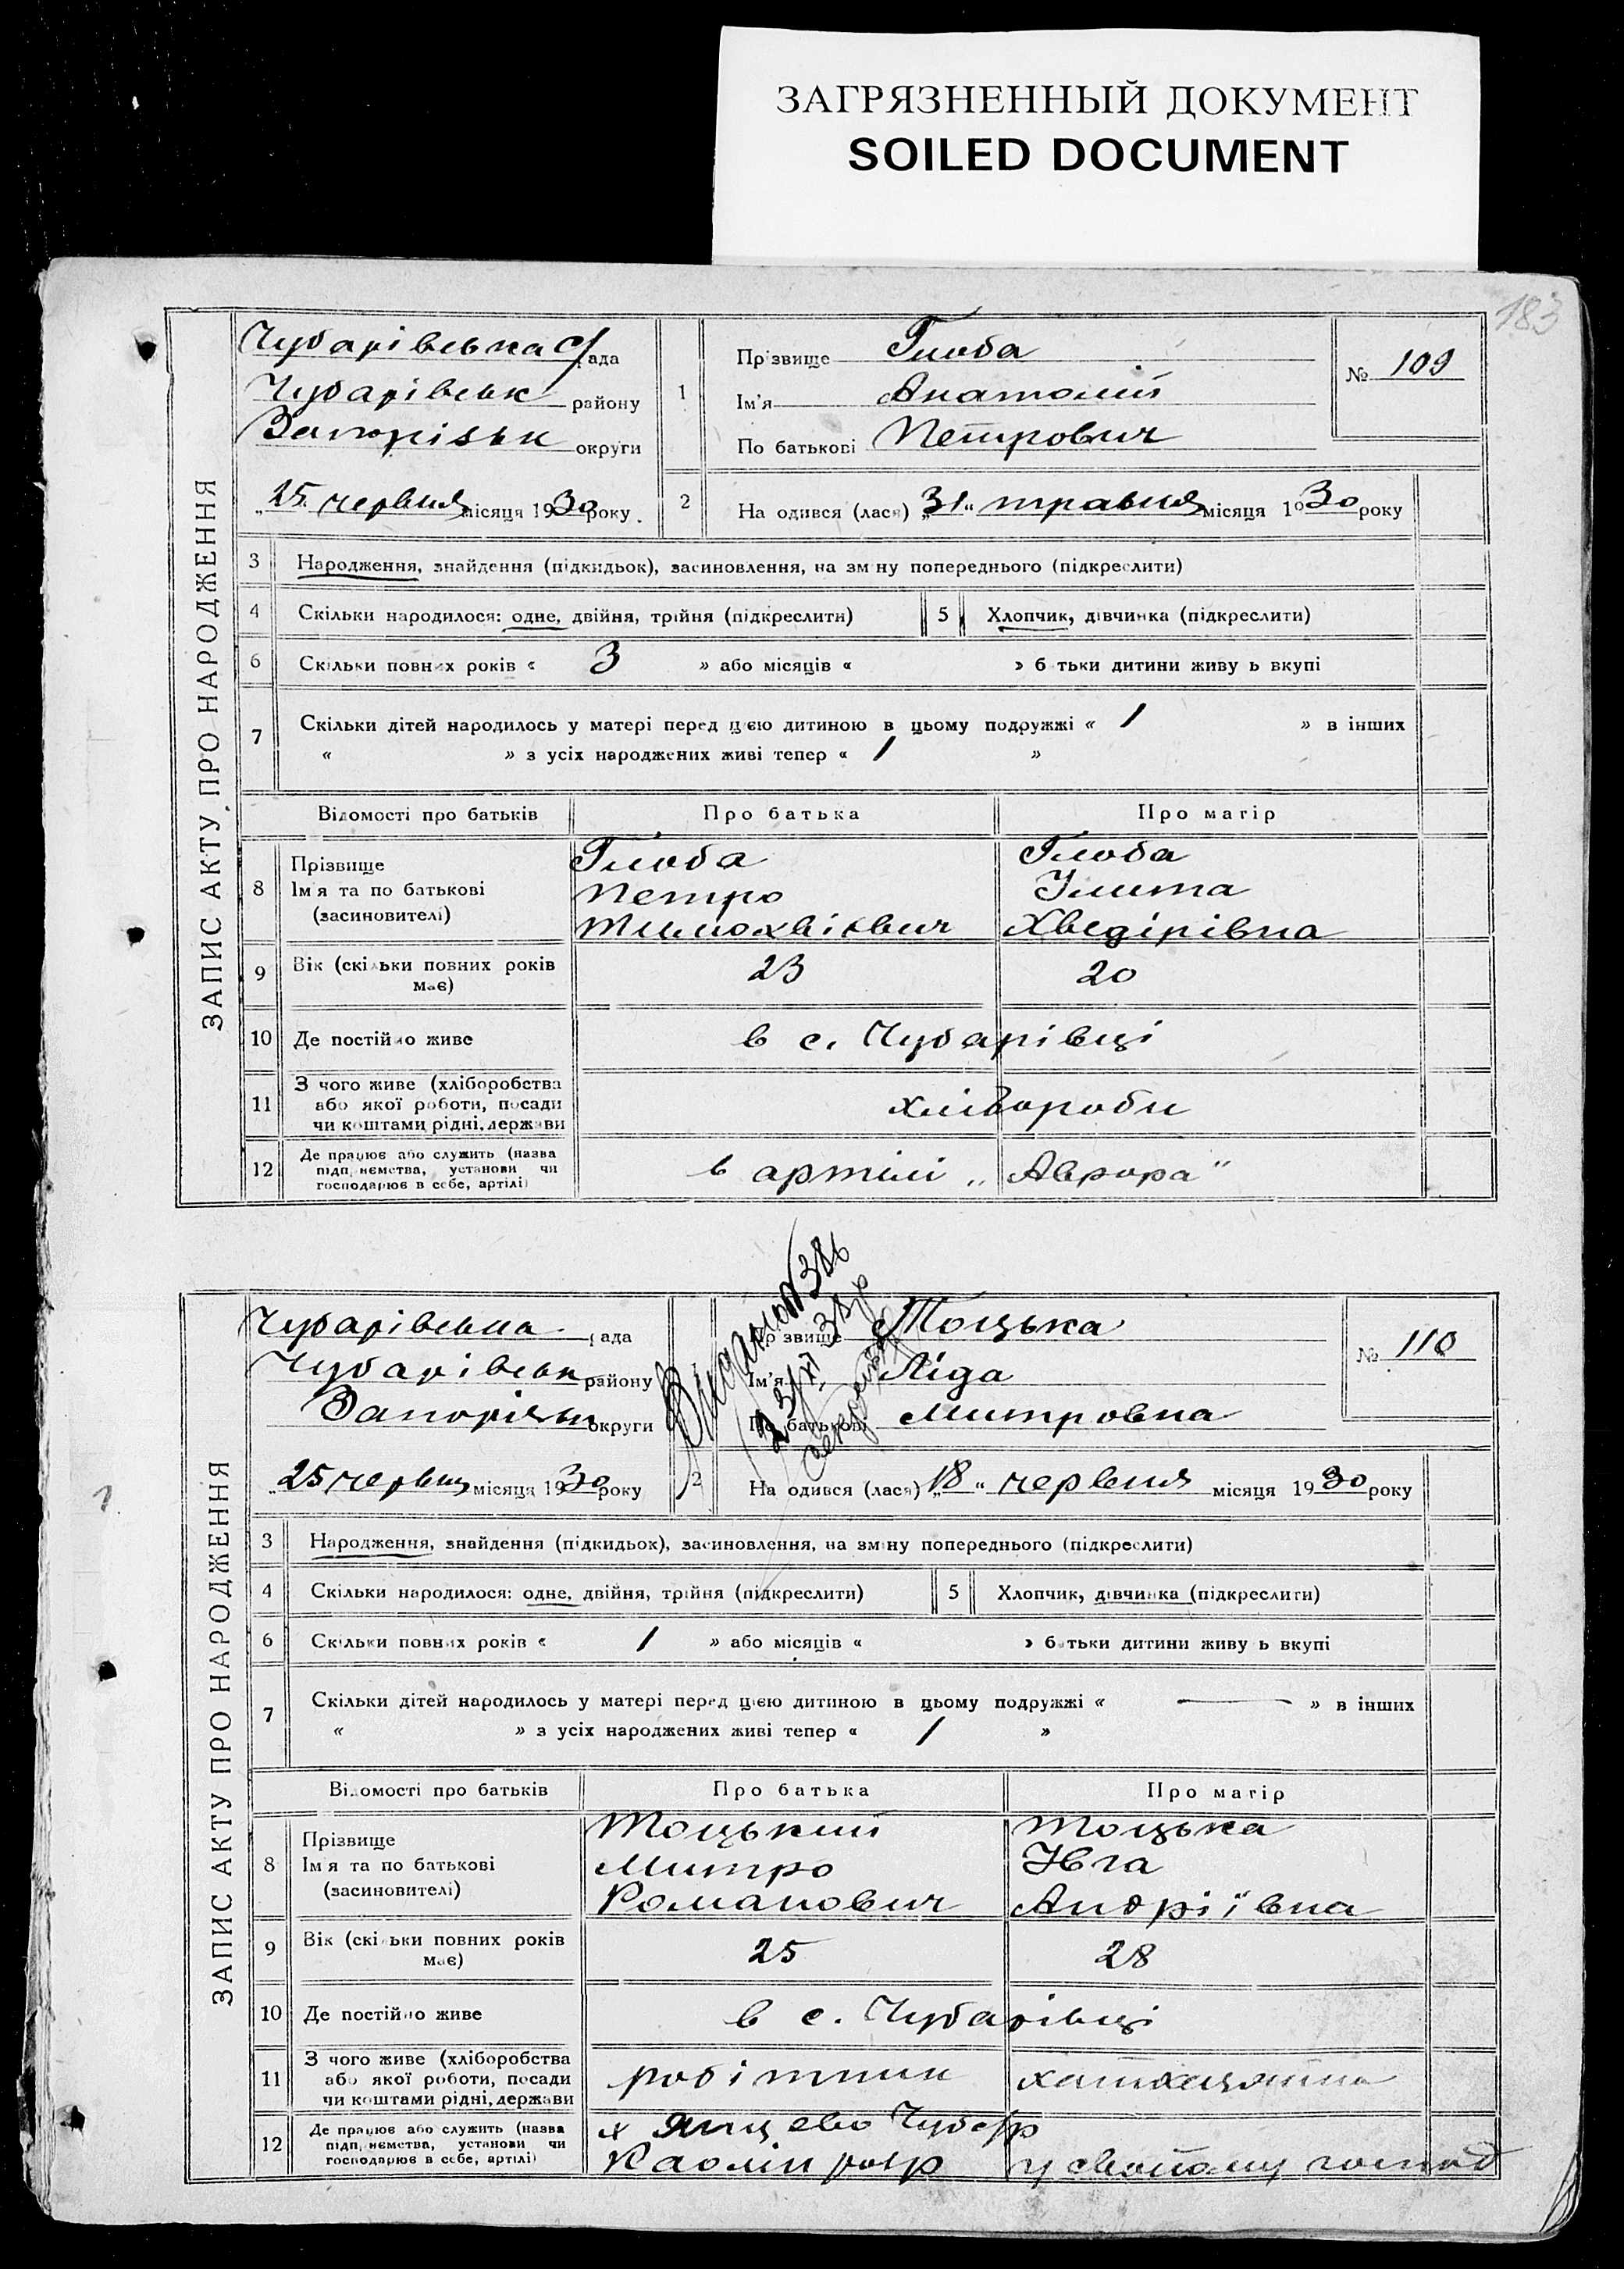 ЗАГРЯЗНЕННЫЙ ДОКУМЕНТ
SOILED DOCUMENT
183
ЗАПИС АКТУ ПРО НАРОДЖЕННЯ
Чубарівська с/рада
Чубарівськ району
Запорізьк округи
„25„ червня місяця 1930 року.
1
Прізвище Глоба
Ім'я Анатолій
По батькові Петрович
№ 109
2 На одився (лася) „31“ травня місяця 1930 року
3 Народження, знайдення (підкидьок), засиновлення, на зміну попереднього (підкреслити)
4 Скільки народилося: одне, двійня, трійня (підкреслити) 5 Хлопчик, дівчинка (підкреслити)
6 Скільки повних років « 3 » або місяців « » батьки дитини живу ь вкупі
7 Скільки дітей народилось у матері перед цією дитиною в цьому подружжі « 1 » в інших
« » з усіх народжених живі тепер « 1 »
Відомості про батьків Про батька Про матір
8 Прізвище Глоба Глоба
Ім'я та по батькові Петро Улита
(засиновителі) Тимохвієвич Хведірівна
9 Вік (скільки повних років має) 23 20
10 Де постійно живе в с. Чубарівці
11 З чого живе (хліборобства
або якої роботи, посади хлібороби
чи коштами рідні, держави
12 Де працює або служить (назва
підприємства, установи чи в артілі „Аврора“
господарює в себе, артілі)
ЗАПИС АКТУ ПРО НАРОДЖЕННЯ
Чубарівська рада
Чубарівськ району
Запорізьк округи
„25 червня місяця 1930 року
Прізвище Тоцька
Ім'я Ліда
По батькові Митровна
№ 110
2 На одився (лася) „18“ червня місяця 1930 року
3 Народження, знайдення (підкидьок), засиновлення, на зміну попереднього (підкреслити)
4 Скільки народилося: одне, двійня, трійня (підкреслити) 5 Хлопчик, дівчинка (підкреслити)
6 Скільки повних років « 1 » або місяців « » батьки дитини живу ь вкупі
7 Скільки дітей народилось у матері перед цією дитиною в цьому подружжі « — » в інших
« » з усіх народжених живі тепер « 1 »
Відомості про батьків Про батька Про матір
8 Прізвище Тоцький Тоцька
Ім'я та по батькові Митро Ївга
(засиновителі) Романович Андріївна
9 Вік (скільки повних років має) 25 28
10 Де постійно живе в с. Чубарівці
11 З чого живе (хліборобства
або якої роботи, посади робітник хатохазяйка
чи коштами рідні, держави
12 Де працює або служить (назва
підприємства, установи чи
господарює в себе, артілі) Каолін розр у свойому господ